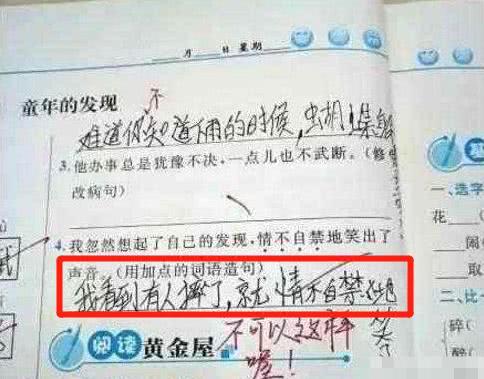 月 日 星期
童年的发现
不
难道你知道下雨的时候,
3.他办事总是犹豫不决,一点儿也不武断。(修
改病句)
4.我忽然想起了自己的发现,情不自禁地笑出了
声音。(用加点的词语造句)
我看到有人摔了,就情不自禁地
笑
不可以这样
喔!
阅读 黄金屋
一、选字
花
闹
取
二、比一
碎(
醉(